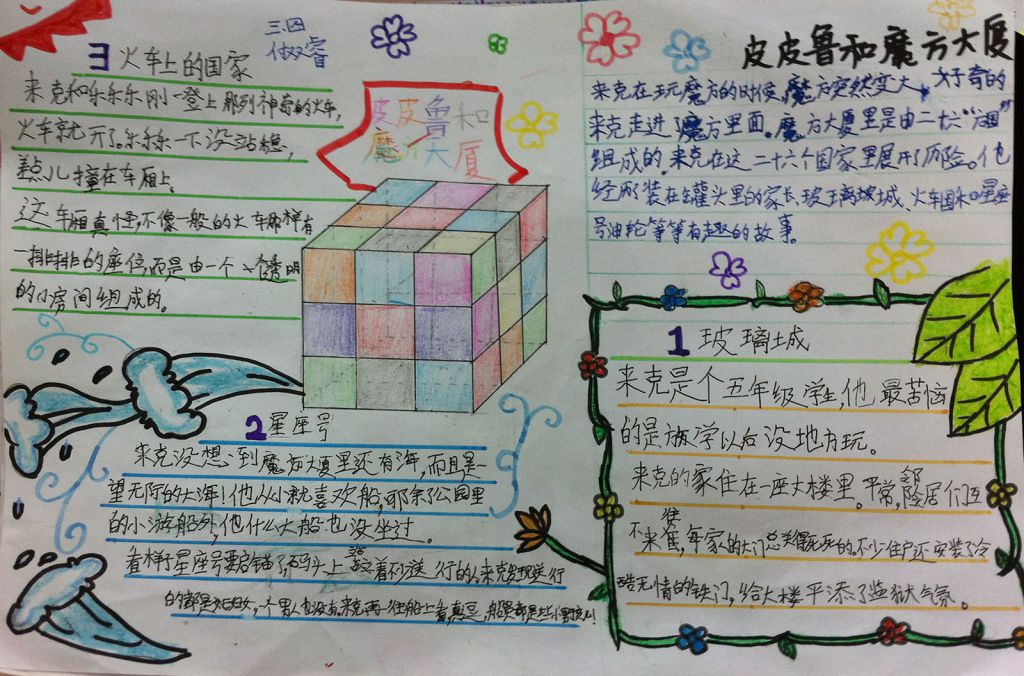 三.四
皮皮鲁和魔方大厦
皮皮鲁和
魔方大厦
来克在玩魔方的时候,魔方突然变大,好奇的
来克走进了魔方里面。魔方大厦里是由二十六“方国”
组成的,来克在这二十六个国家里展开了历险。他
经历装在罐头里的家长、玻璃城、火车国和星座
号油轮等等有趣的故事。
1 玻璃城
来克是个五年级学生,他最苦恼
的是放学以后没地方玩。
来克的家住在一座大楼里。平常,邻居们互
不来往,每家的大门总关得死死的,不少住户还安装了冷
酷无情的铁门,给大楼平添了监狱气氛。
2 星座号
来克没想到魔方大厦里还有海,而且是一
望无际的大海!他从小就喜欢船,可除了公园里
的小游船外,他什么大船也没坐过。
看样子星座号要启锚了,码头上站着不少送行的人,来克发现送行
的都是妇女,一个男人也没有,来克再往船上看,
3 火车上的国家
来克和乐乐乐刚一登上那列神奇的火车,
火车就开了。乐乐乐一下没站稳,
差点儿撞在车厢上。
这车厢真怪,不像一般的火车那样有
一排排的座位,而是由一个个透明
的小房间组成的。